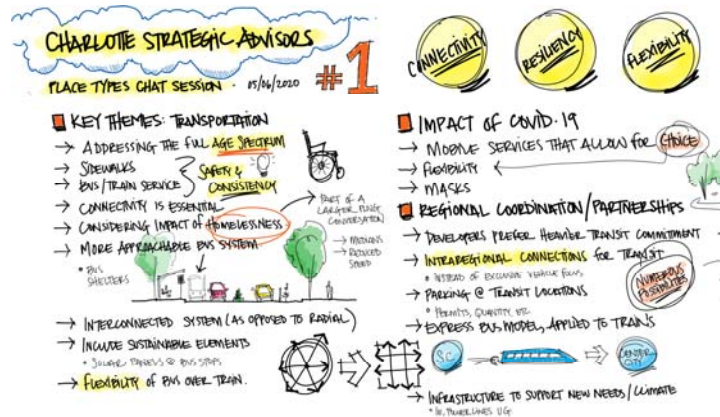 CHARLOTTE STRATEGIC ADVISORS
PLACE TYPES CHAT SESSION · 05/06/2020
#1
KEY THEMES: TRANSPORTATION
→ ADDRESSING THE FULL AGE SPECTRUM
→ SIDEWALKS
→ BUS/TRAIN SERVICE
SAFETY &
CONSISTENCY
→ CONNECTIVITY IS ESSENTIAL
→ CONSIDERING IMPACT OF HOMELESSNESS
PART OF A
LARGER
CONVERSATION
→ MEDIANS
→ REDUCED
SPEED
→ MORE APPROACHABLE BUS SYSTEM
• BUS
SHELTERS
→ INTERCONNECTED SYSTEM (AS OPPOSED TO RADIAL)
→ INCLUDE SUSTAINABLE ELEMENTS
• SOLAR PANELS @ BUS STOPS
→ FLEXIBILITY OF BUS OVER TRAIN.
CONNECTIVITY
RESILIENCY
FLEXIBILITY
IMPACT OF COVID·19
→ MOBILE SERVICES THAT ALLOW FOR CHOICE
→ FLEXIBILITY
→ MASKS
REGIONAL COORDINATION/PARTNERSHIPS
→ DEVELOPERS PREFER HEAVIER TRANSIT COMMITMENT
→ INTRAREGIONAL CONNECTIONS FOR TRANSIT
• INSTEAD OF EXCLUSIVE VEHICLE FOCUS
→ PARKING @ TRANSIT LOCATIONS
• PERMITS, QUANTITY, ETC.
NUMEROUS
POSSIBILITIES
→ EXPRESS BUS MODEL, APPLIED TO TRAINS
S.C.
CENTER
CITY
→ INFRASTRUCTURE TO SUPPORT NEW NEEDS/CLIMATE
• IE. POWER LINES U.G.